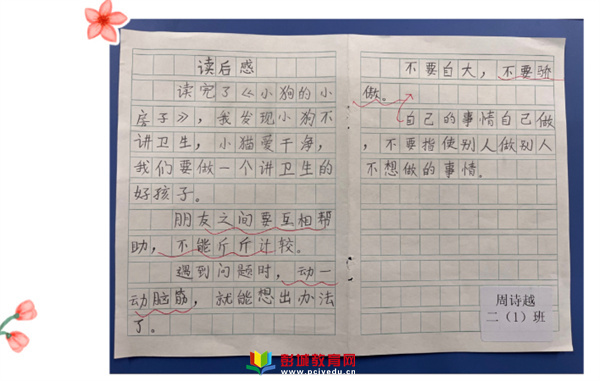 读后感
读完了《小狗的小
房子》，我发现小狗不
讲卫生，小猫爱干净，
我们要做一个讲卫生的
好孩子。
朋友之间要互相帮
助，不能斤斤计较。
遇到问题时，动一
动脑筋，就能想出办法
了。
不要自大，不要骄
做。
自己的事情自己做
，不要指使别人做别人
不想做的事情。
周诗越
二（1）班
彭城教育网
www.pcjyedu.cn